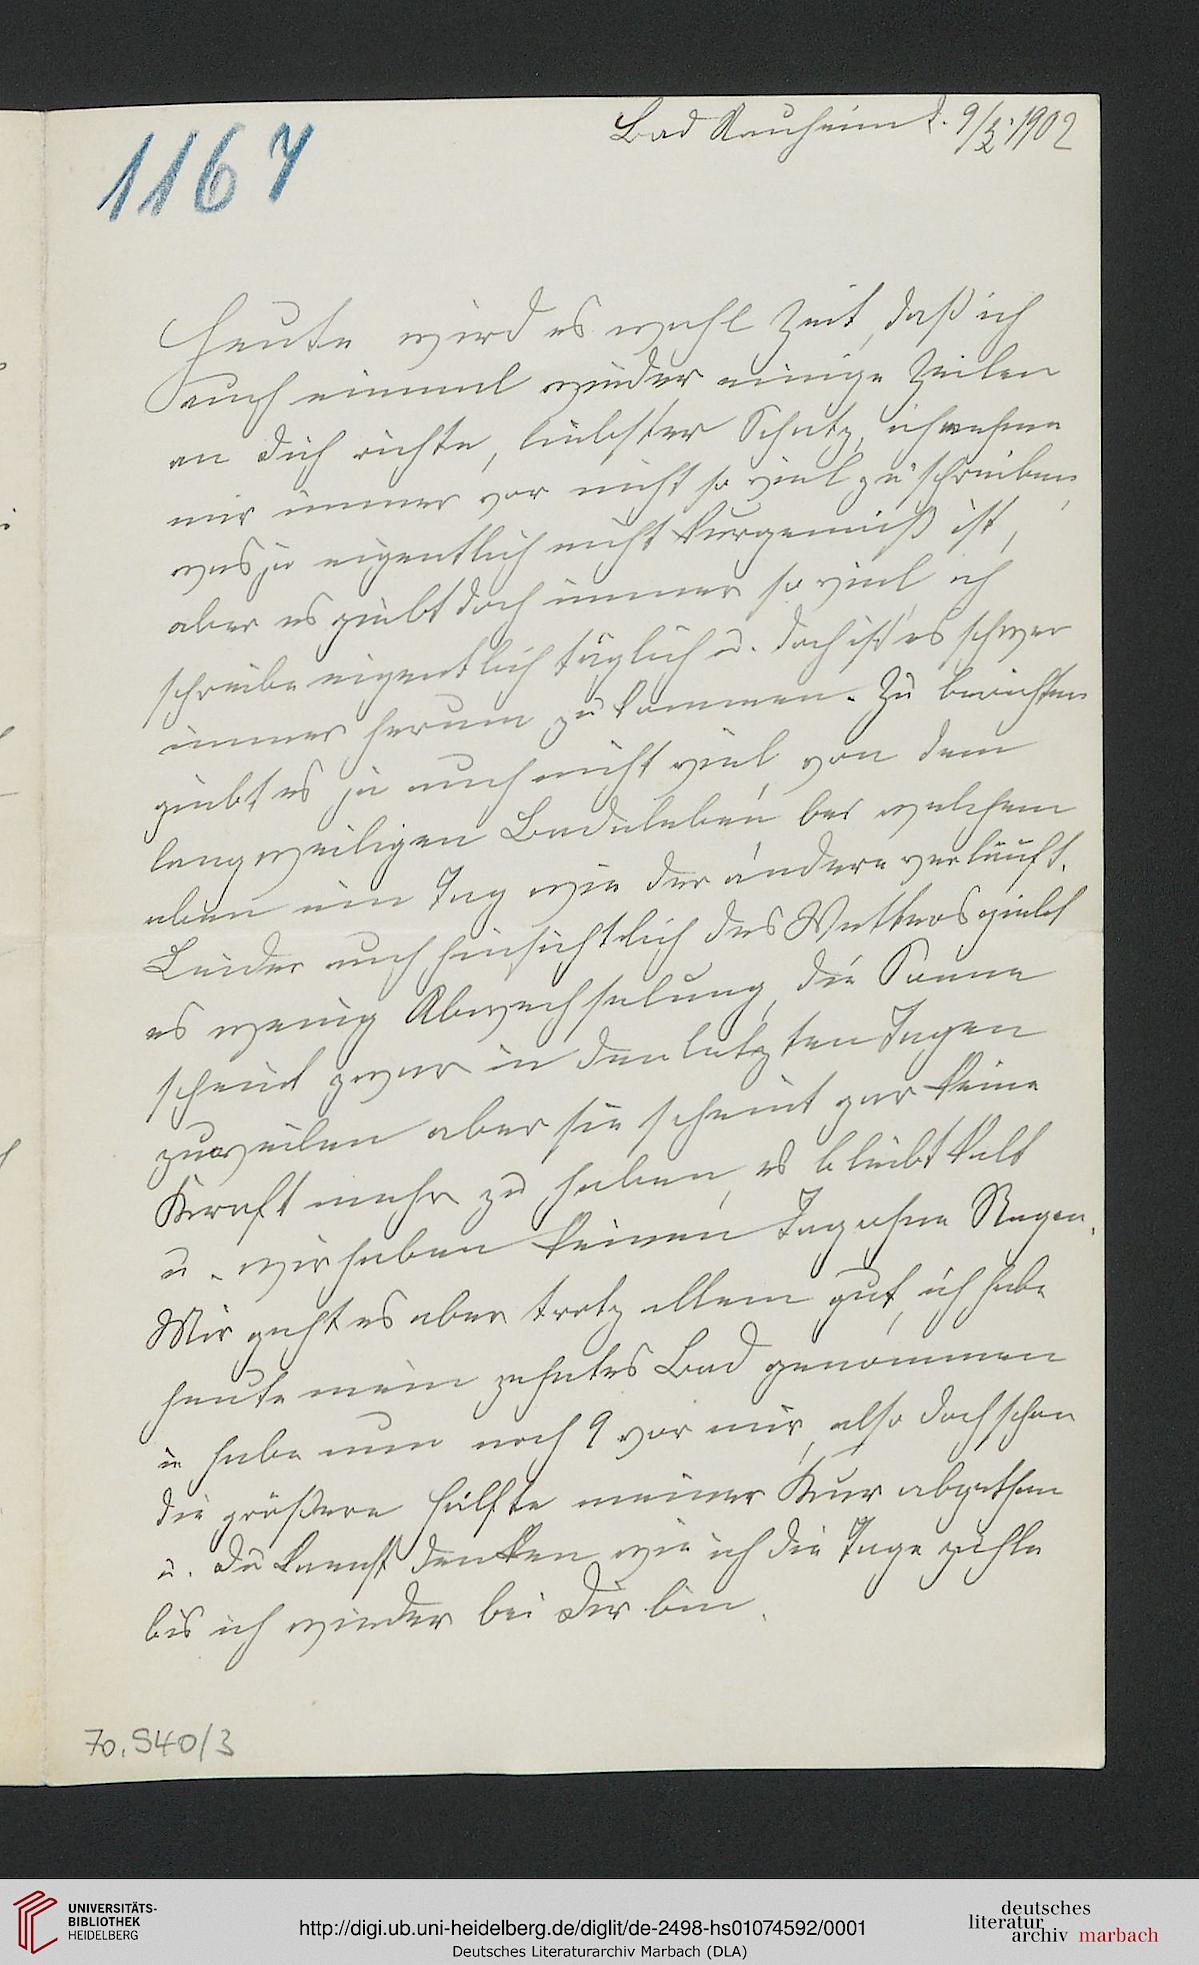 Bad Nauheim d. 9/5. 1902
1167
Heute wird es wohl Zeit, daß ich
auch einmal wieder einige Zeilen
an Dich richte, liebster Schatz, ich nehme
mir immer vor nicht so viel zu schreiben,
was ja eigentlich nicht kurgemäß ist,
aber es giebt doch immer so viel, ich
schreibe eigentlich täglich u. doch ist es schwer
immer herum zu kommen. Zu berichten
giebt es ja auch nicht viel, von dem
langweiligen Badeleben bei welchem
eben ein Tag wie der andere verläuft.
Leider auch hinsichtlich des Wetters giebt
es wenig Abwechselung, die Sonne
scheint zwar in den letzten Tagen
zuweilen aber sie scheint gar keine
Kraft mehr zu haben, es bleibt kalt
u. wir haben keinen Tag ohne Regen.
Mir geht es aber trotz allem gut, ich habe
heute mein zehntes Bad genommen
u habe nun noch 9 vor mir, also doch schon
die größere Hälfte meiner Kur abgethan
u. Du kannst denken wie ich die Tage zähle
bis ich wieder bei Dir bin.
70.540/3
UNIVERSITÄTS-
BIBLIOTHEK
HEIDELBERG
http://digi.ub.uni-heidelberg.de/diglit/de-2498-hs01074592/0001
Deutsches Literaturarchiv Marbach (DLA)
deutsches
literatur
archiv marbach